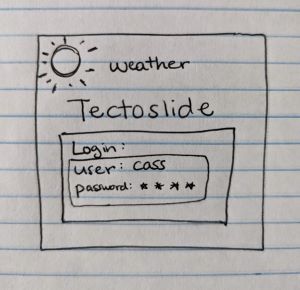 weather
Tectoslide
Login:
user: cass
password: * * * *